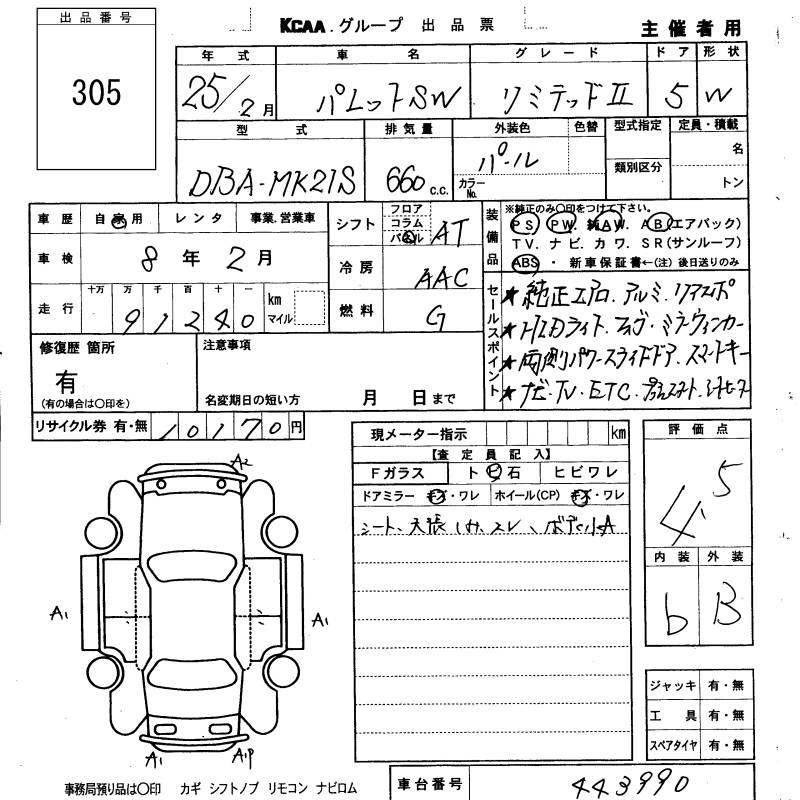 出品番号
305
KCAA.グループ 出品票
主催者用
年式 車名 グレード ドア 形状
25/2月 パレットSW リミテッドII 5 W
型式 排気量 外装色 色替 型式指定 定員・積載
DBA-MK21S 660 c.c. パール カラーNo. 類別区分 名 トン
車歴 自家用 レンタ 事業.営業車
車検 8年2月
走行 十万 万 千 百 十 一 km マイル
91240
シフト フロア コラム パネル AT
冷房 AAC
燃料 G
装備品
※純正のみ〇印をつけて下さい。
PS PW. 純AW. AB(エアバック)
TV. ナビ. カワ. SR(サンルーフ)
ABS ・ 新車保証書←(注) 後日送りのみ
セールスポイント
★純正エアロ. アルミ. リアスポ
★HIDライト. フォグ・ミラーウィンカー
★両側パワースライドドア. スマートキー
★ナビ. TV. ETC. プッシュスタート. シートヒーター
修復歴 箇所
有
(有の場合は〇印を)
注意事項
名変期日の短い方 月 日まで
リサイクル券 有・無 10170円
現メーター指示 km
【査定員記入】
Fガラス ト ビ 石 ヒビワレ
ドアミラー キズ・ワレ ホイール(CP) キズ・ワレ
シート、天張 しみ、スレ、ボディ小A
評価点
4.5
内装 外装
b B
A2
A1 A1
A1 A1P
ジャッキ 有・無
工具 有・無
スペアタイヤ 有・無
事務局預り品は〇印 カギ シフトノブ リモコン ナビロム
車台番号 443990